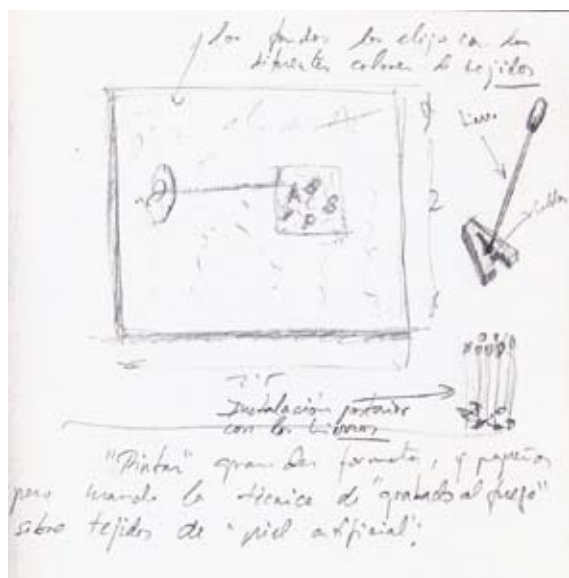 los fondos los elijo con los
diferentes colores de tejidos
Hierro
2
Instalación posterior
con los hierros
"Pintar" grandes formatos, y pequeños
pero usando la técnica de "grabado al fuego"
sobre tejidos de "piel artificial".